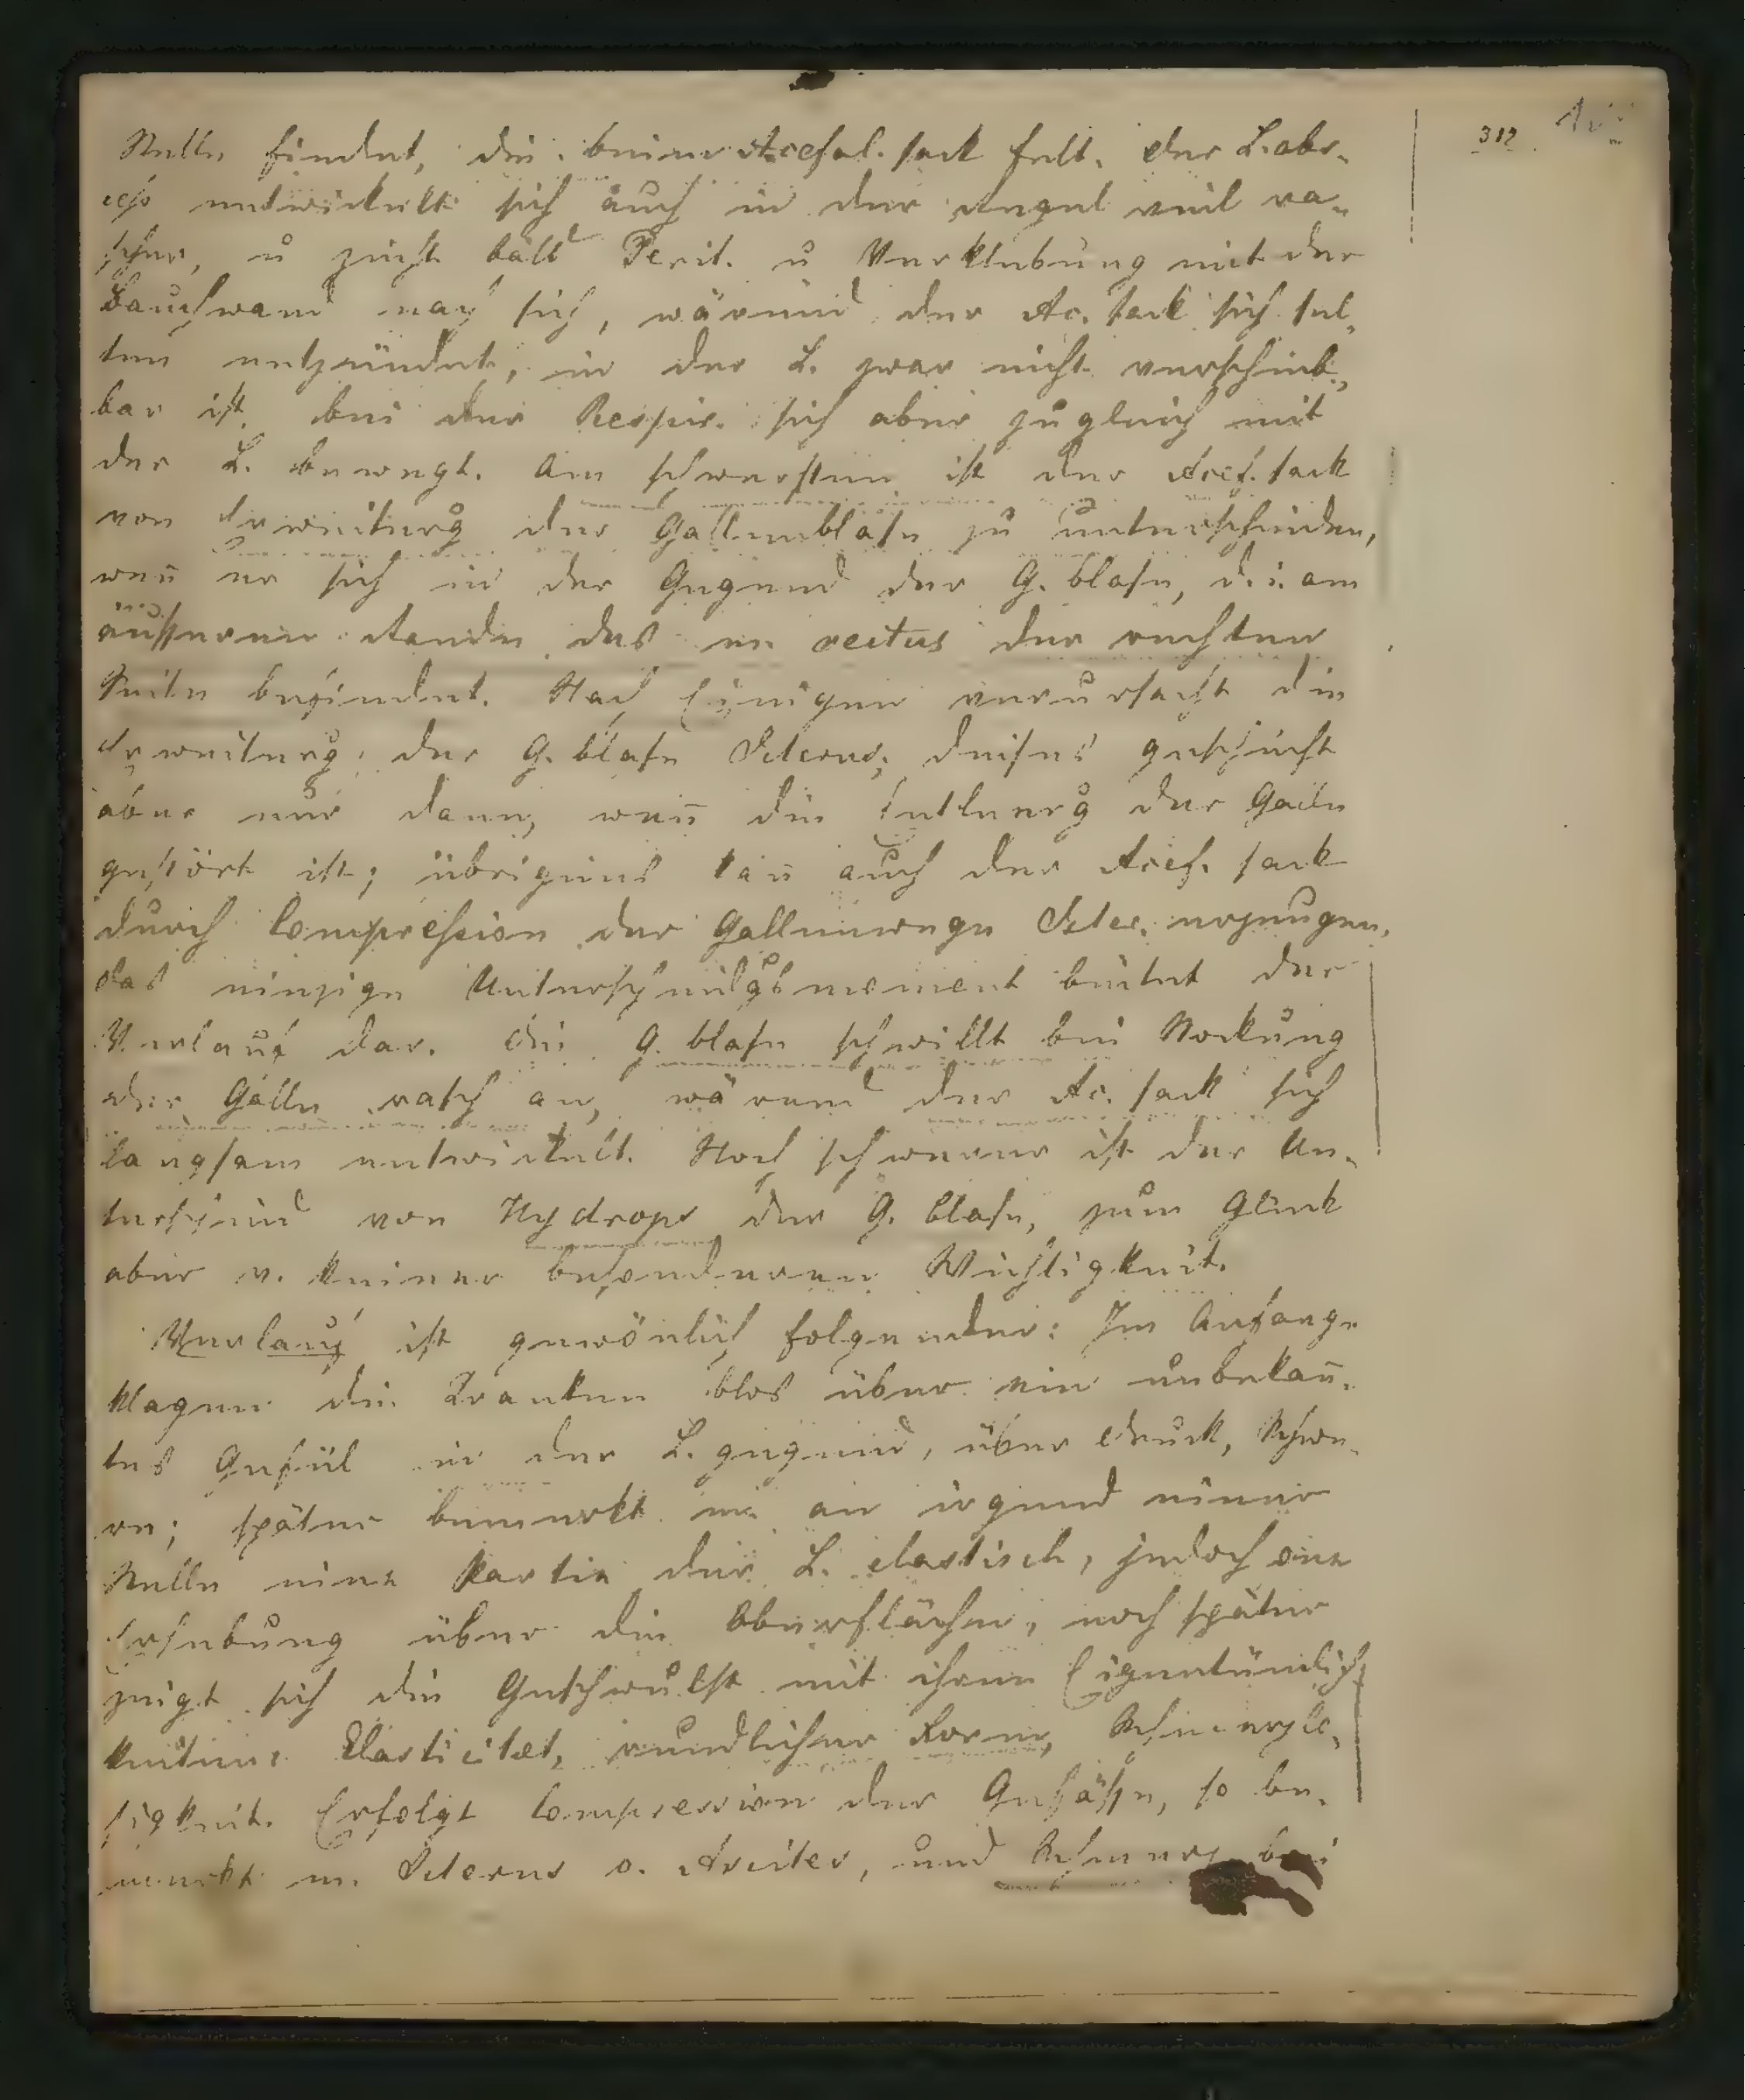 312
Stelle findet, die beim Acefal. sack felt. Der L. abs-
ceß entwickelt sich auch in der Regel viel ra-
scher, u zieht bald Perit. u Verklebung mit der
Bauchwand nach sich, wärend der Ac. sack sich sel-
ten entzündet, in der L. zwar nicht verschieb-
bar ist, bei der Respir. sich aber zugleich mit
der L. bewegt. Am schwersten ist der Acef. sack
von Erweiterg der Gallenblase zu unterscheiden,
wen̄ er sich in der Gegend der G. blase, d. i. am
äusseren Rande des m. rectus der rechten
Seite befindet. Nach Einigen verursacht die
Erweiterg der G. blase Icterus, dieses geschieht
aber nur dann, wen̄ die Entleerg der Galle
gestört ist; übrigens kan̄ auch der Acef. sack
durch Compression der Gallenwege Icter. erzeugen,
das einzige Unterscheidgsmoment bietet der
Verlauf dar. Die G. blase schwillt bei Stockung
der Galle rasch an, wärend der Ac. sack sich
langsam entwickelt. Noch schwerer ist der Un-
terschied von Hydrops der G. blase, zum Glück
aber v. keiner besonderen Wichtigkeit.
Verlauf ist gewönlich folgender: Im Anfange
klagen die Kranken blos über ein unbekan̄-
tes Gefül in der L. gegend, über Druck, Schwe-
re; später bemerkt m. an irgend einer
Stelle eine Partie der L. elastisch, jedoch one
Erhebung über die Oberfläche, noch später
zeigt sich die Geschwulst mit ihren Eigentümlich-
keiten: Elasticitæt, rundlicher Form, Schmerzlo-
sigkeit. Erfolgt Compression der Gefäße, so be-
merkt m. Icterus o. Ascites, und Schmerz bei